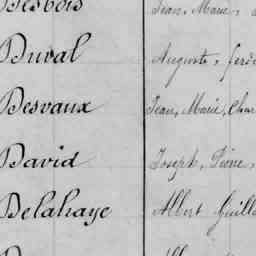 Desbois Jean, Marie,
Duval Auguste, 
Desvaux Jean, Marie, Char
David Joseph, Pierre,
Delahaye Albert Guill